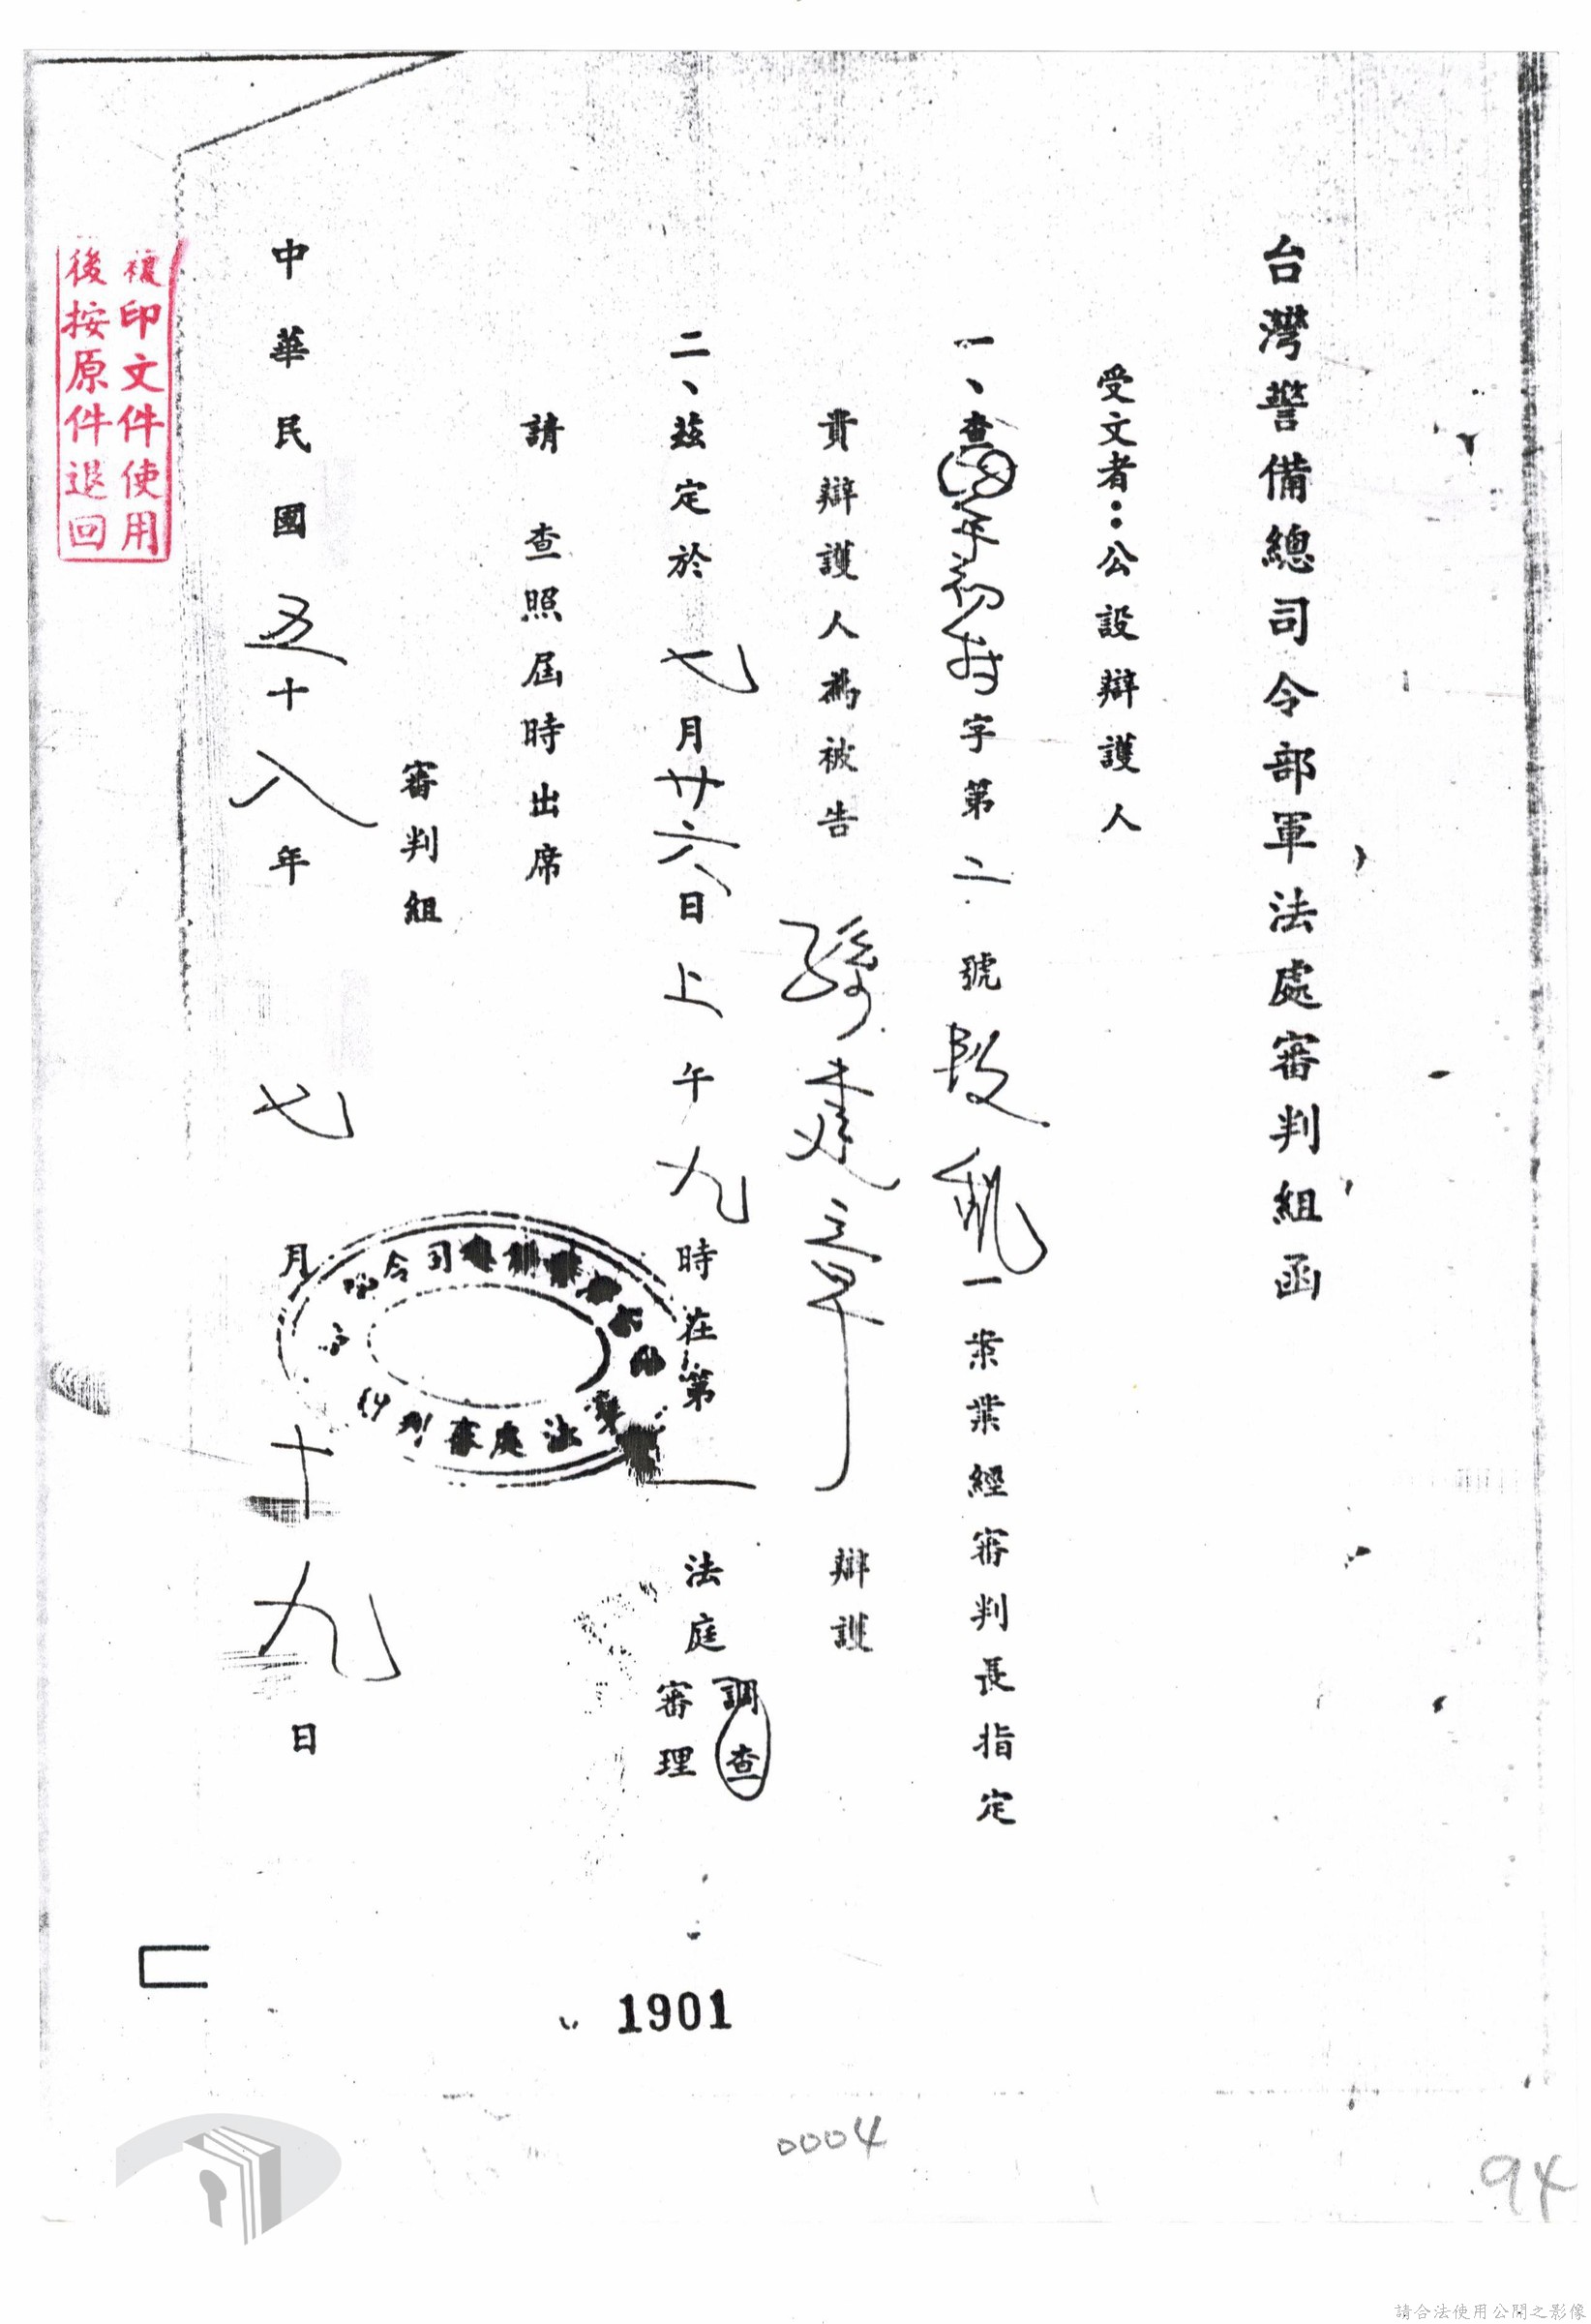 台灣警備總司令部軍法處審判組函
受文者：公設辯護人
一、查年初特字第二號叛亂一案業經審判長指定
貴辯護人為被告孫建章辯護
二、茲定於七月廿六日上午九時在第一法庭調查審理
請查照屆時出席
審判組
中華民國五十八年七月十九日
複印文件使用
後按原件退回
1901
0004
94
請合法使用公開之影像